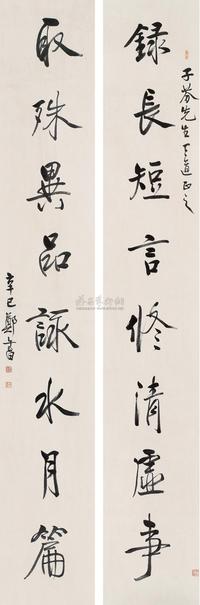 録長短言修清虛事
子芬先生方道正之
取殊異品詠水月篇
辛巳鄭